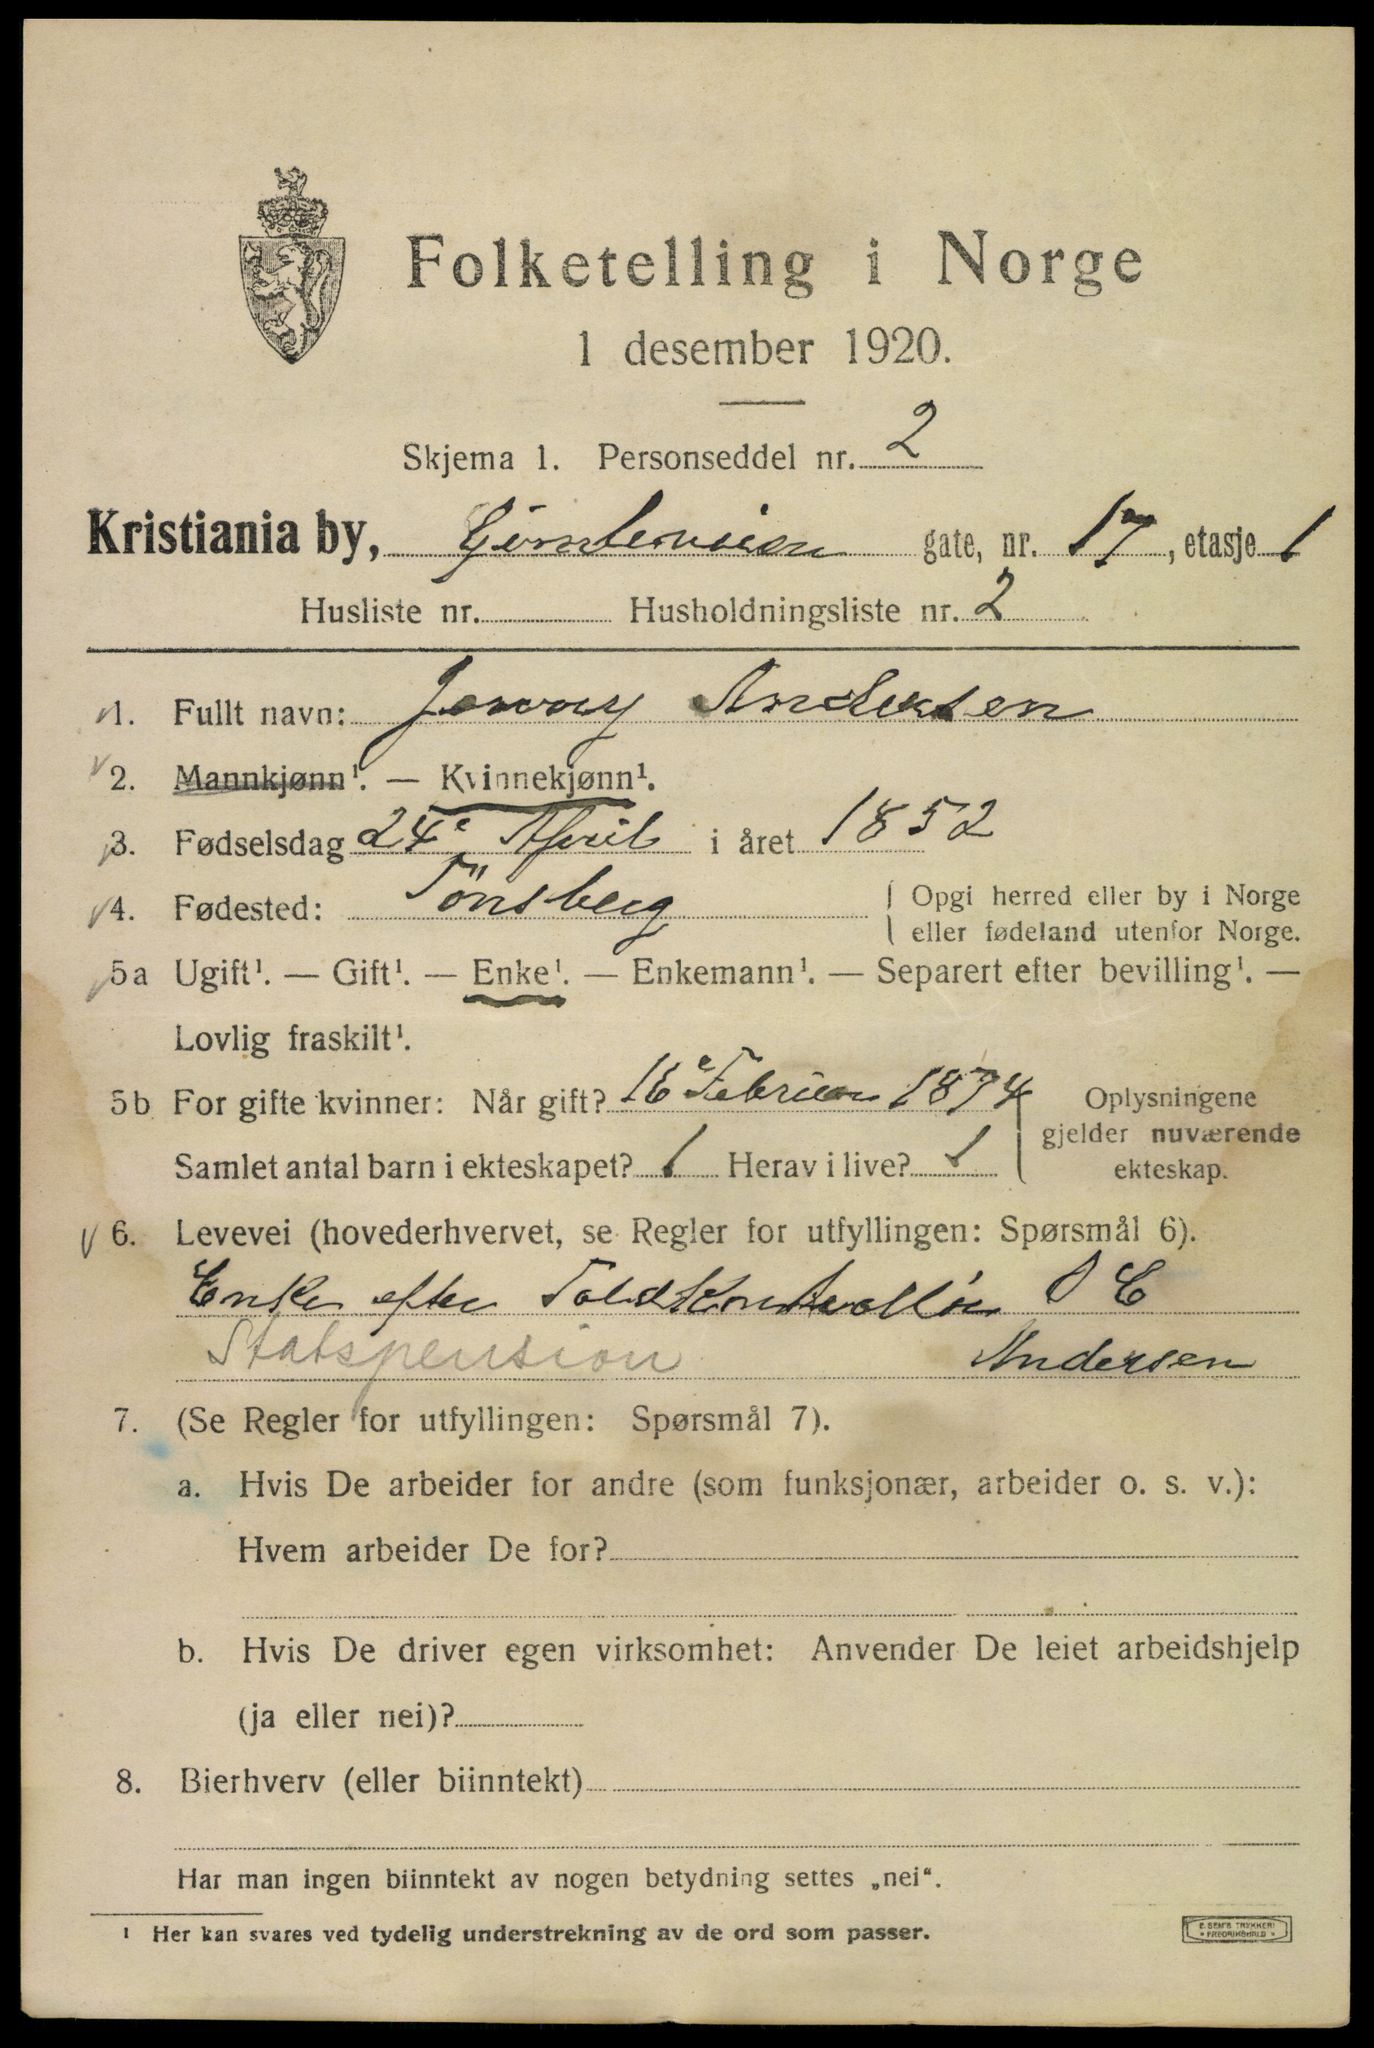 Folketelling i Norge
1 desember 1920.
Skjema 1. Personseddel nr. 2
Kristiania by, Gimleveien gate, nr. 17, etasje 1
Husliste nr. Husholdningsliste nr. 2
1. Fullt navn: Jenny Andersen
2. Mannkjønn¹. — Kvinnekjønn¹.
3. Fødselsdag 24de April i året 1852
4. Fødested: Tönsberg
{ Opgi herred eller by i Norge
eller fødeland utenfor Norge.
5a Ugift¹. — Gift¹. — Enke¹. — Enkemann¹. — Separert efter bevilling¹. —
Lovlig fraskilt¹.
5b For gifte kvinner: Når gift? Februar 1874
Samlet antal barn i ekteskapet? 1 Herav i live? 1
Oplysningene
gjelder nuværende
ekteskap.
6. Levevei (hovederhvervet, se Regler for utfyllingen: Spørsmål 6).
Enke efter Toldkontrollör C
Statspension Andersen
7. (Se Regler for utfyllingen: Spørsmål 7).
a. Hvis De arbeider for andre (som funksjonær, arbeider o. s. v.):
Hvem arbeider De for?
b. Hvis De driver egen virksomhet: Anvender De leiet arbeidshjelp
(ja eller nei)?
8. Bierhverv (eller biinntekt)
Har man ingen biinntekt av nogen betydning settes „nei“.
¹ Her kan svares ved tydelig understrekning av de ord som passer.
E. SEM'S TRYKKERI
FREDRIKSHALD